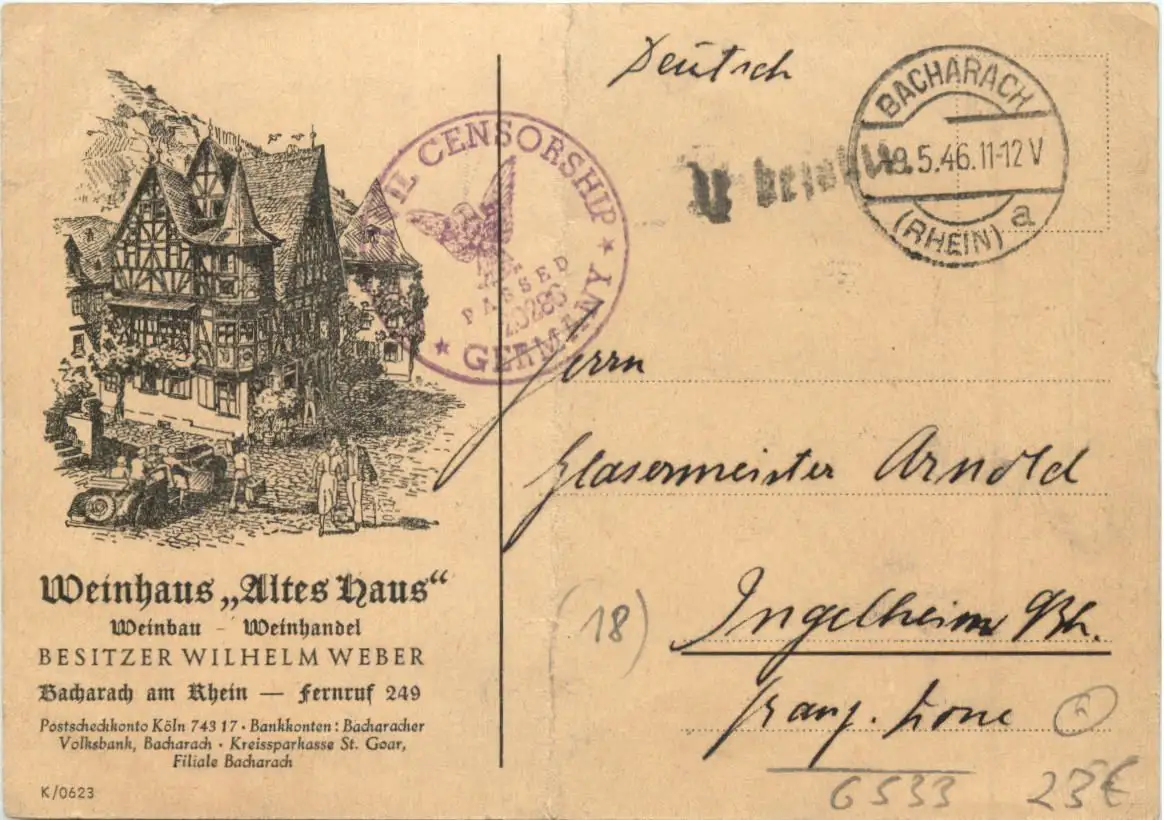 Deutsch
BACHARACH
9.5.46.11-12 V
(RHEIN) a
CIVIL CENSORSHIP
PASSED
20286
GERMANY
Herrn
Glasermeister Arnold
(18) Ingelheim Rh.
franz. Zone
6533 23€
Weinhaus „Altes Haus“
Weinbau - Weinhandel
BESITZER WILHELM WEBER
Bacharach am Rhein — Fernruf 249
Postscheckkonto Köln 743 17 · Bankkonten: Bacharacher
Volksbank, Bacharach · Kreissparkasse St. Goar,
Filiale Bacharach
K/0623